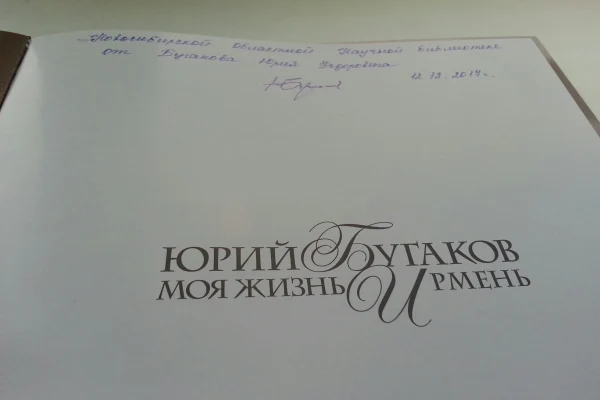 Новосибирской областной Научной библиотеке
от Бугакова Юрия Федоровича
12.12.2014г.
ЮРИЙ БУГАКОВ
МОЯ ЖИЗНЬ ИРМЕНЬ